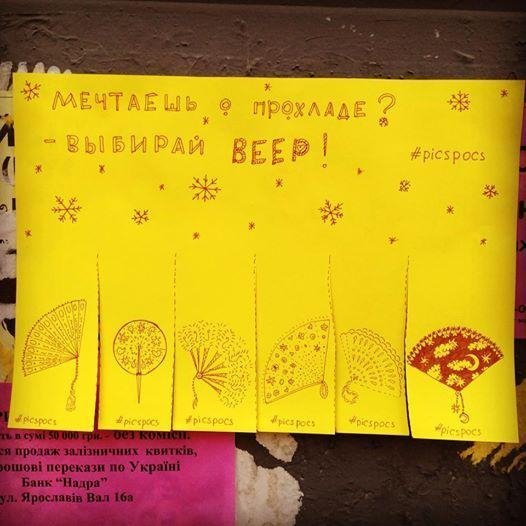 МЕЧТАЕШЬ О ПРОХЛАДЕ?
- ВЫБИРАЙ ВЕЕР!
#picspocs
#picspocs
#picspocs
#picspocs
#picspocs
#picspocs
#picspocs
в сумі 50 000 грн. - без комісії.
продаж залізничних квитків,
перекази по Україні
Банк “Надра”
вул. Ярославів Вал 16а